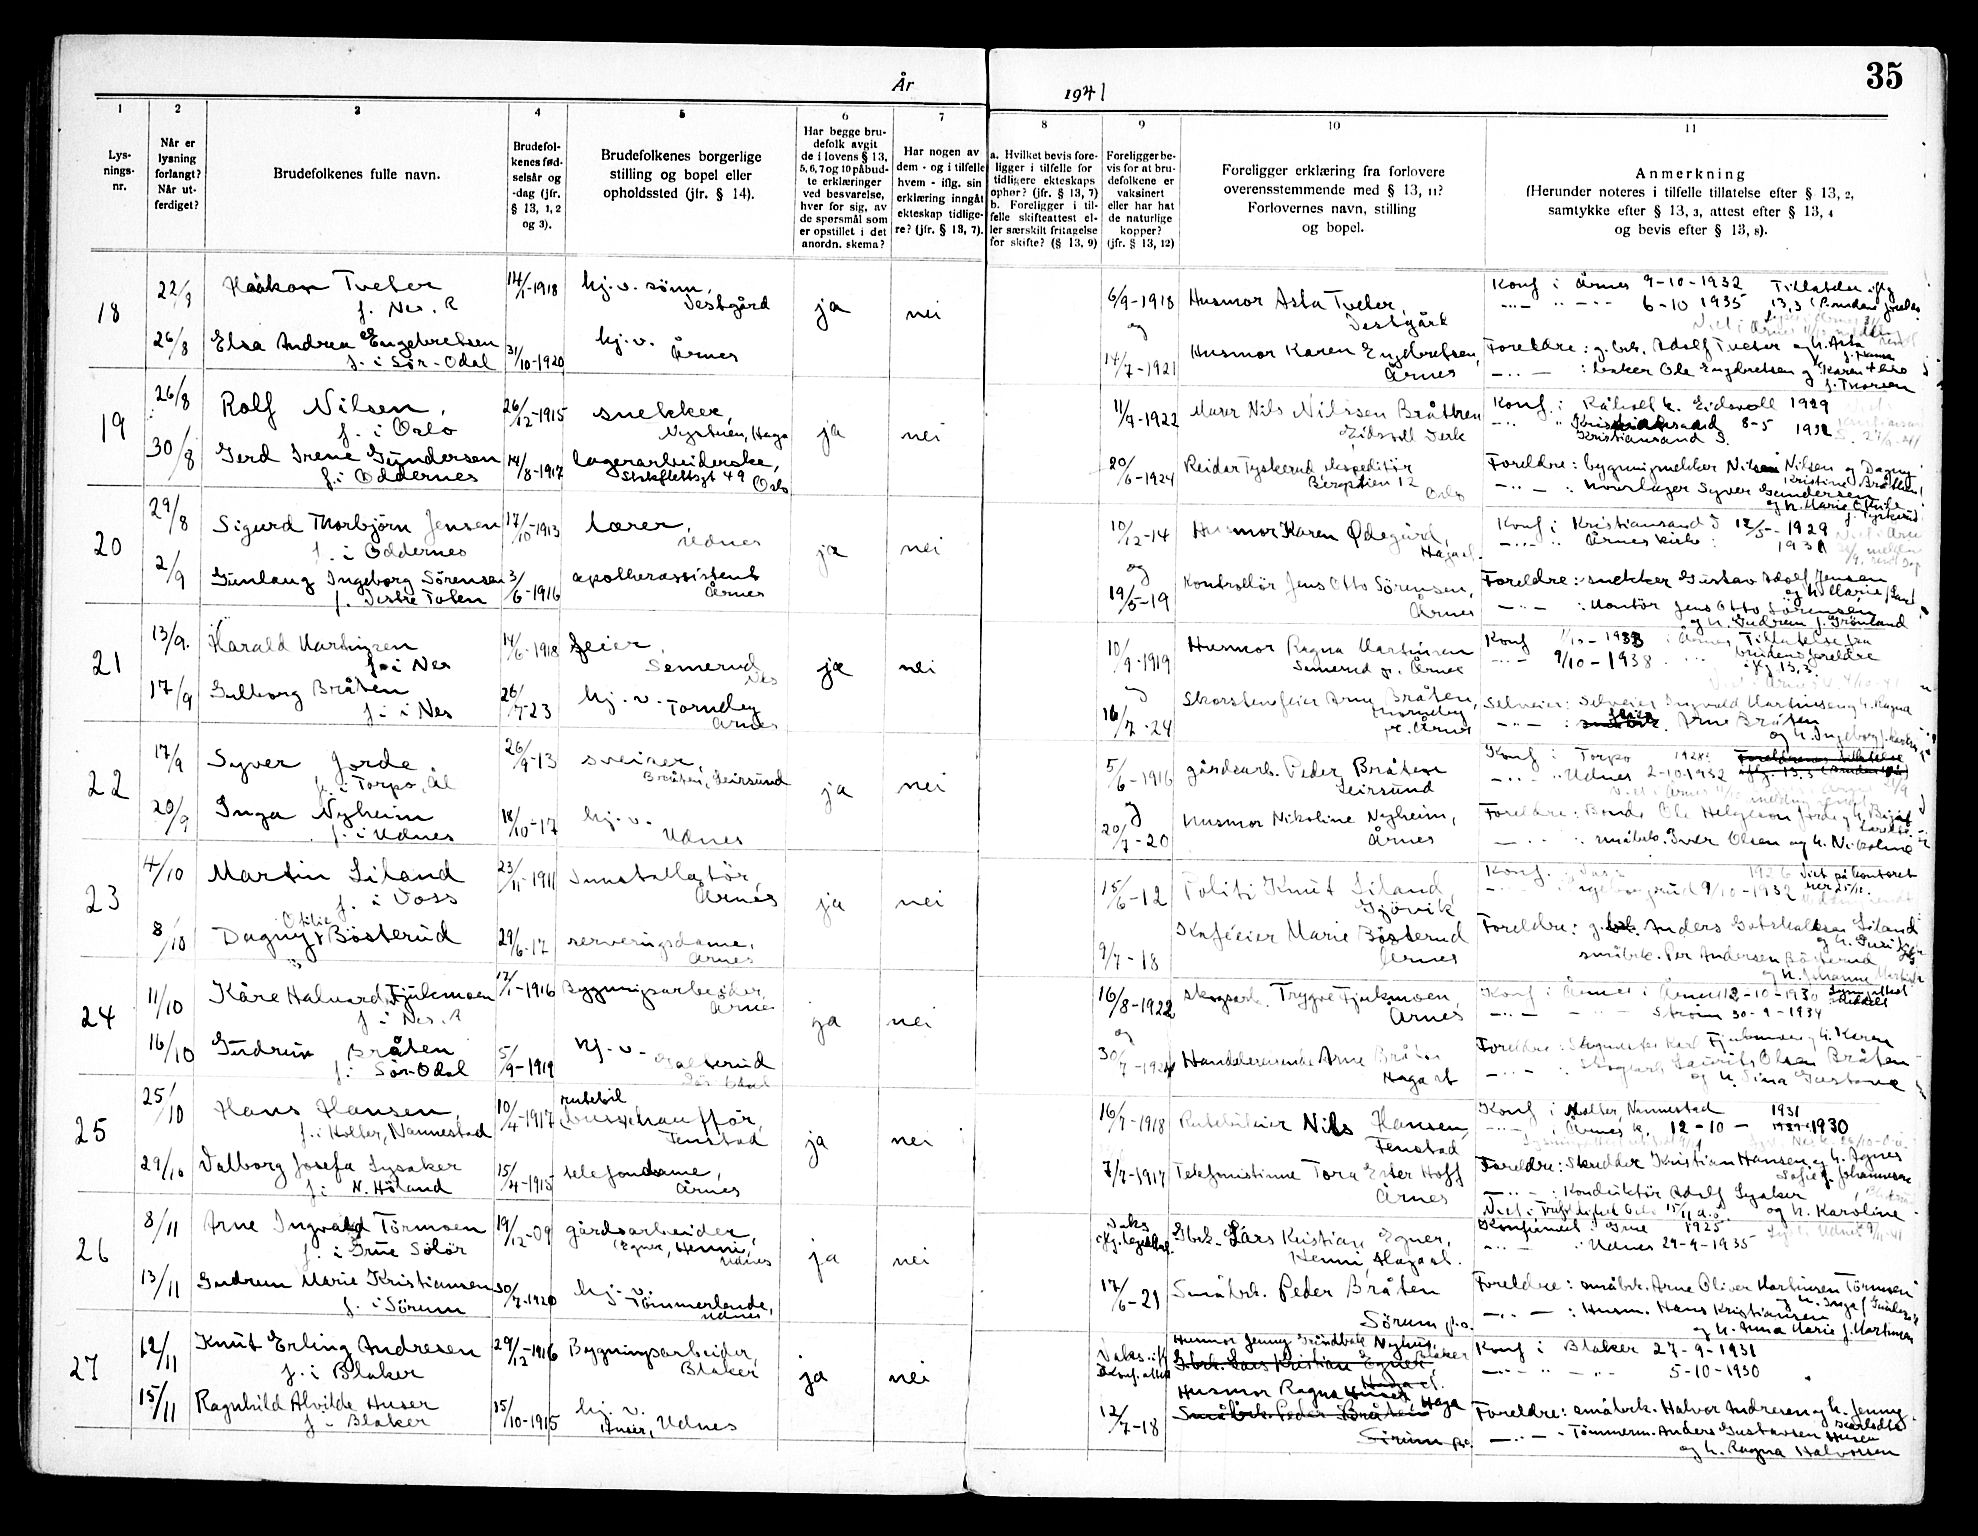 35
År
1941
1
2
3
4
5
6
7
8
9
10
11
Lys-
nings-
nr.
Når er
lysning
forlangt?
Når ut-
ferdiget?
Brudefolkenes fulle navn.
Brudefol-
kenes fød-
selsår og
-dag (jfr.
§ 13, 1, 2
og 3).
Brudefolkenes borgerlige
stilling og bopel eller
opholdssted (jfr. § 14).
Har begge bru-
defolk avgit
de i lovens § 13,
5, 6, 7 og 10 påbud-
te erklæringer
ved besvarelse,
hver for sig, av
de spørsmål som
er opstillet i det
anordn. skema?
Har nogen av
dem - og i tilfelle
hvem - iflg. sin
erklæring inngått
ekteskap tidlige-
re? (jfr. § 13, 7).
a. Hvilket bevis fore-
ligger i tilfelle for
tidligere ekteskaps
ophør? (jfr. § 13, 7)
b. Foreligger i til-
felle skifteattest el-
ler særskilt fritagelse
for skifte? (§ 13, 9)
Foreligger be-
vis for at bru-
defolkene er
vaksinert
eller har hat
de naturlige
kopper?
(jfr. § 13, 12)
Foreligger erklæring fra forlovere
overensstemmende med § 13, 11?
Forlovernes navn, stilling
og bopel.
Anmerkning
(Herunder noteres i tilfelle tillatelse efter § 13, 2,
samtykke efter § 13, 3, attest efter § 13, 4
og bevis efter § 13, 8).
18
22/8
Håkon Tveter
f. Nes. R
14/1-1918
hj. v. sønn,
Vestgård
ja
nei
6/9-1918
Husmor Asta Tveter,
Vestgård
Konf i Årnes 9-10-1932
6-10 1935
26/8
Elsa Andrea Engebretsen
f. i Sør-Odal
31/10-1920
hj. v.
Årnes
og
14/7-1921
Husmor Karen Engebretsen,
Årnes
Foreldre: g.brk. Adolf Tveter og h. Asta
f. Thoresen
19
26/8
Rolf Nilsen,
f. i Oslo
26/12-1915
snekker,
Haga
ja
nei
11/7-1922
Murer Nils Nilssen Bråthen
Eidsvoll Verk
Konf. i Råholt k. Eidsvoll 1929
8-5 1932
Kristiansand S.
30/8
Gerd Irene Gundersen
f. i Oddernes
14/8-1917
lagerarbeiderske,
49 Oslo
20/6-1924
Reidar Tyskerud ekspeditør
12
Oslo
Foreldre: bygningsnekker Nilsen og Dagny
Kristine Bråthen
Syver Gundersen
og h. Marie
f. Tyskerud
20
29/8
Sigurd Thorbjörn Jensen
f. i Oddernes
17/10-1913
lærer,
Udnes
ja
nei
10/12-14
Husmor Karen Ødegård,
Hagast.
Konf i Kristiansand S 12/5-1929
Årnes kirke 1931
2/9
Gunlaug Ingeborg Sörensen
f. Vestre Toten
3/6-1916
apothekassistent
Årnes
og
19/5-19
Kontrollör Jens Otto Sörensen,
Årnes
Foreldre: snekker Gustav Adolf Jensen
og h. Marie
Jens Otto Sörensen
og h. Gudrun f. Grønland
21
13/9.
Harald Martinsen
f. i Nes
14/6-1918
feier,
Semerud
Nes
ja
nei
10/9-1919
Husmor Ragna Martinsen
Semerud p. Årnes
Konf 1933 i Årnes Tillatelse fra
9/10-1938 brudens foreldre
iflg 13,3
17/9
Gulborg Bråten
f. i Nes
26/7-23
hj. v. Torneby
Årnes
og
16/7-24
Skorstensfeier Arne Bråten,
Torneby
pr. Årnes
Selveier Ingvald Martinsen og h. Ragna
feier Arne Bråten
og h. Ingeborg
22
17/9
Syver Jorde
f. i Torpo, Ål
26/9-13
sveiser,
Bråten, Leirsund
ja
nei
5/6-1916
gårdsarb. Peder Bråten
Leirsund
Konf i Torpo 1928
Udnes 2-10-1932
20/9
Inga Nyheim
f. i Udnes
18/10-17
hj. v.
Udnes
og
20/7-20
Husmor Nikoline Nyheim,
Årnes
Foreldre: Bonde Ole Helgeson Jorde og h. Birgit
småbrk. Iver Olsen og h. Nikoline
23
4/10
Martin Liland
f. i Voss
23/11-1911
Innstallatör,
Årnes
ja
nei
15/6-12
Politi Knut Liland
Gjövik
Konf. 1926
9/10-1932
8/10
Dagny Otilie Bösterud
29/6-17
serveringsdame,
Årnes
9/7-18
Kaféeier Marie Bösterud
Årnes
Foreldre: g.brk. Anders Gotskalksen Liland
småbrk. Per Andersen Bösterud
og h. Johanne
24
11/10
Kåre Halvard Fjukmoen
f. i Nes. R
17/1-1916
Bygningsarbeider,
Årnes
ja
nei
16/8-1922
skogsarb. Trygve Fjukmoen,
Årnes
Konf i Årnes i Årnes 12-10-1930
Strøm 30-9-1934
16/10
Gudrun Bråten
f. Sör-Odal
5/9-1919
hj. v.
Galterud
Sör-Odal
og
30/7-1924
Handelsreisende Arne Bråten
Haga st
Foreldre: Fjukmoen og h. Karen
Laurits Olsen Bråten
og h. Sina Gustava
25
25/10
Hans Hansen,
f. i Holter, Nannestad
10/4-1917
rutebil
busschaufför,
Fenstad
ja
nei
16/7-1918
Rutebileier Nils Hansen,
Fenstad
Konf i Holter, Nannestad 1931
Årnes k. 12-10-1930
29/10
Valborg Josefa Lysaker
f. i N. Höland
15/4-1915
telefondame,
Årnes
7/7-1917
Telefonistinne Tora Ester Hoff
Årnes
Foreldre: Skredder Kristian Hansen og h. Agnes
Sofie f. Johannesen
Konduktör Adolf Lysaker
og h. Karoline
26
8/11
Arne Ingvald Törmoen
f. i Grue Solör
19/12-09
gårdsarbeider,
Egner, Henni,
Udnes
ja
nei
Vaks
Gbrk. Lars Kristian Egner,
Henni, Hagast.
Konfirmert i Grue 1925
Udnes 29-9-1935
13/11
Gudrun Marie Kristiansen
f. i Sörum
30/7-1920
hj. v.
Tömmerlande,
Udnes
17/6-21
Småbrk. Peder Bråten
Sörum p.o.
Foreldre: småbrk. Arne Oliver Martinsen Törmoen
og h. Inga
Husm. Hans Kristiansen
og h. Anna Marie f. Martinsen
27
12/11
Knut Erling Andresen
f. i Blaker
29/12-1916
Bygningsarbeider,
Blaker
ja
nei
Vaks.
Husmor Jenny Nyhus,
Blaker
Gbrk. Lars Kristian Egner,
Haga st.
Konf i Blaker 27-9-1931
5-10-1930
15/11
Ragnhild Alvilde Huser
f. i Blaker
15/10-1915
hj. v.
Huser, Udnes
12/7-18
Husmor Ragna Huser Haga
Småbrk. Peder Bråten
Sörum p.o.
Foreldre: småbrk. Halvor Andresen og h. Jenny
Tömmerm. Anders Gustavsen Huser
og h. Ragna Halvorsen